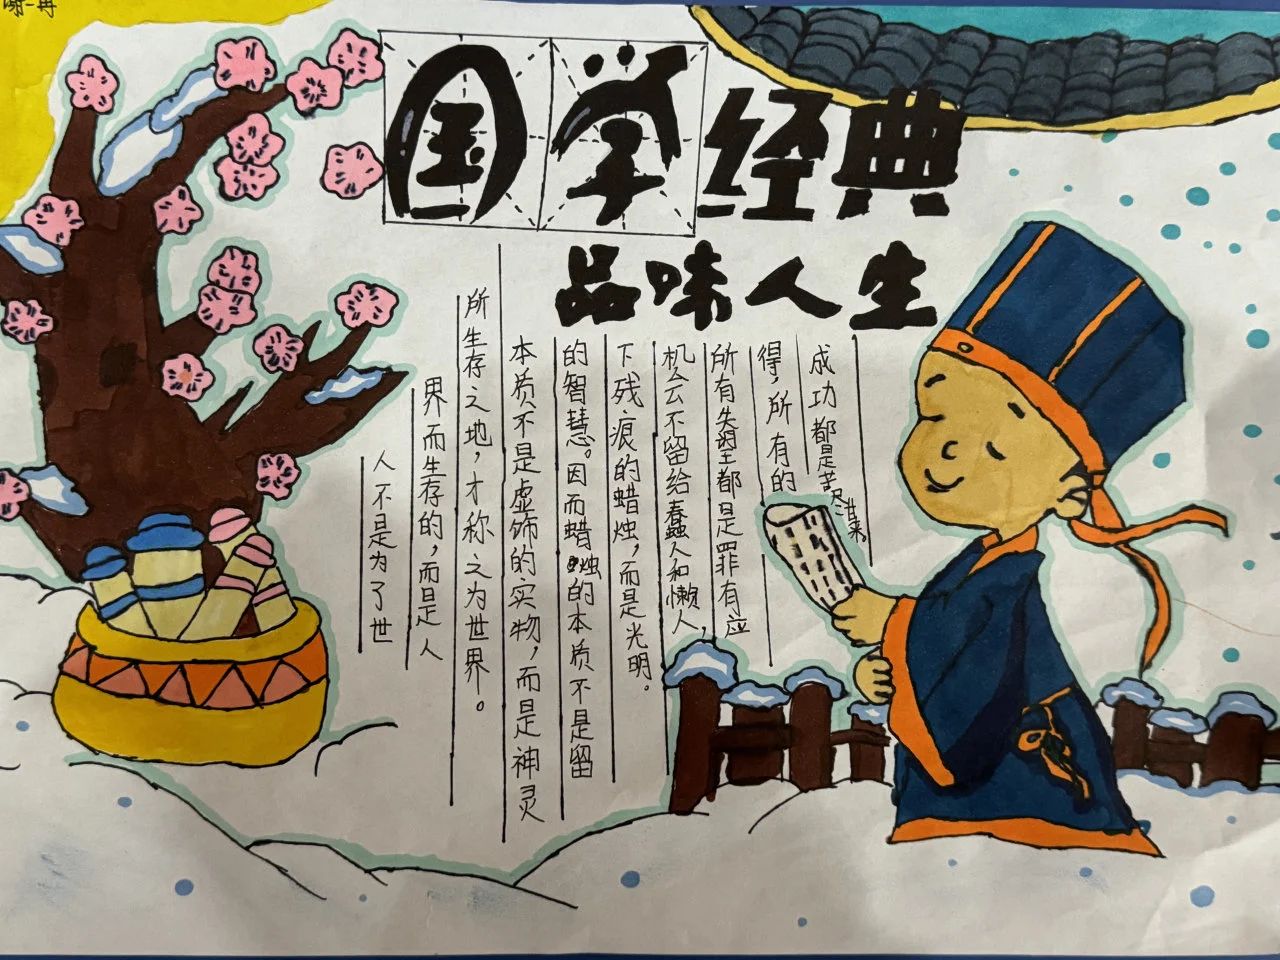 国学经典
品味人生
成功都是苦难
得,所有的
所有失望都是罪有应
机会不留给蠢人和懒人,
下残痕的蜡烛,而是光明。
的智慧。因而蜡烛的本质不是留
本质不是虚饰的实物,而是神灵
所生存之地,才称之为世界。
界而生存的,而是人
人不是为了世